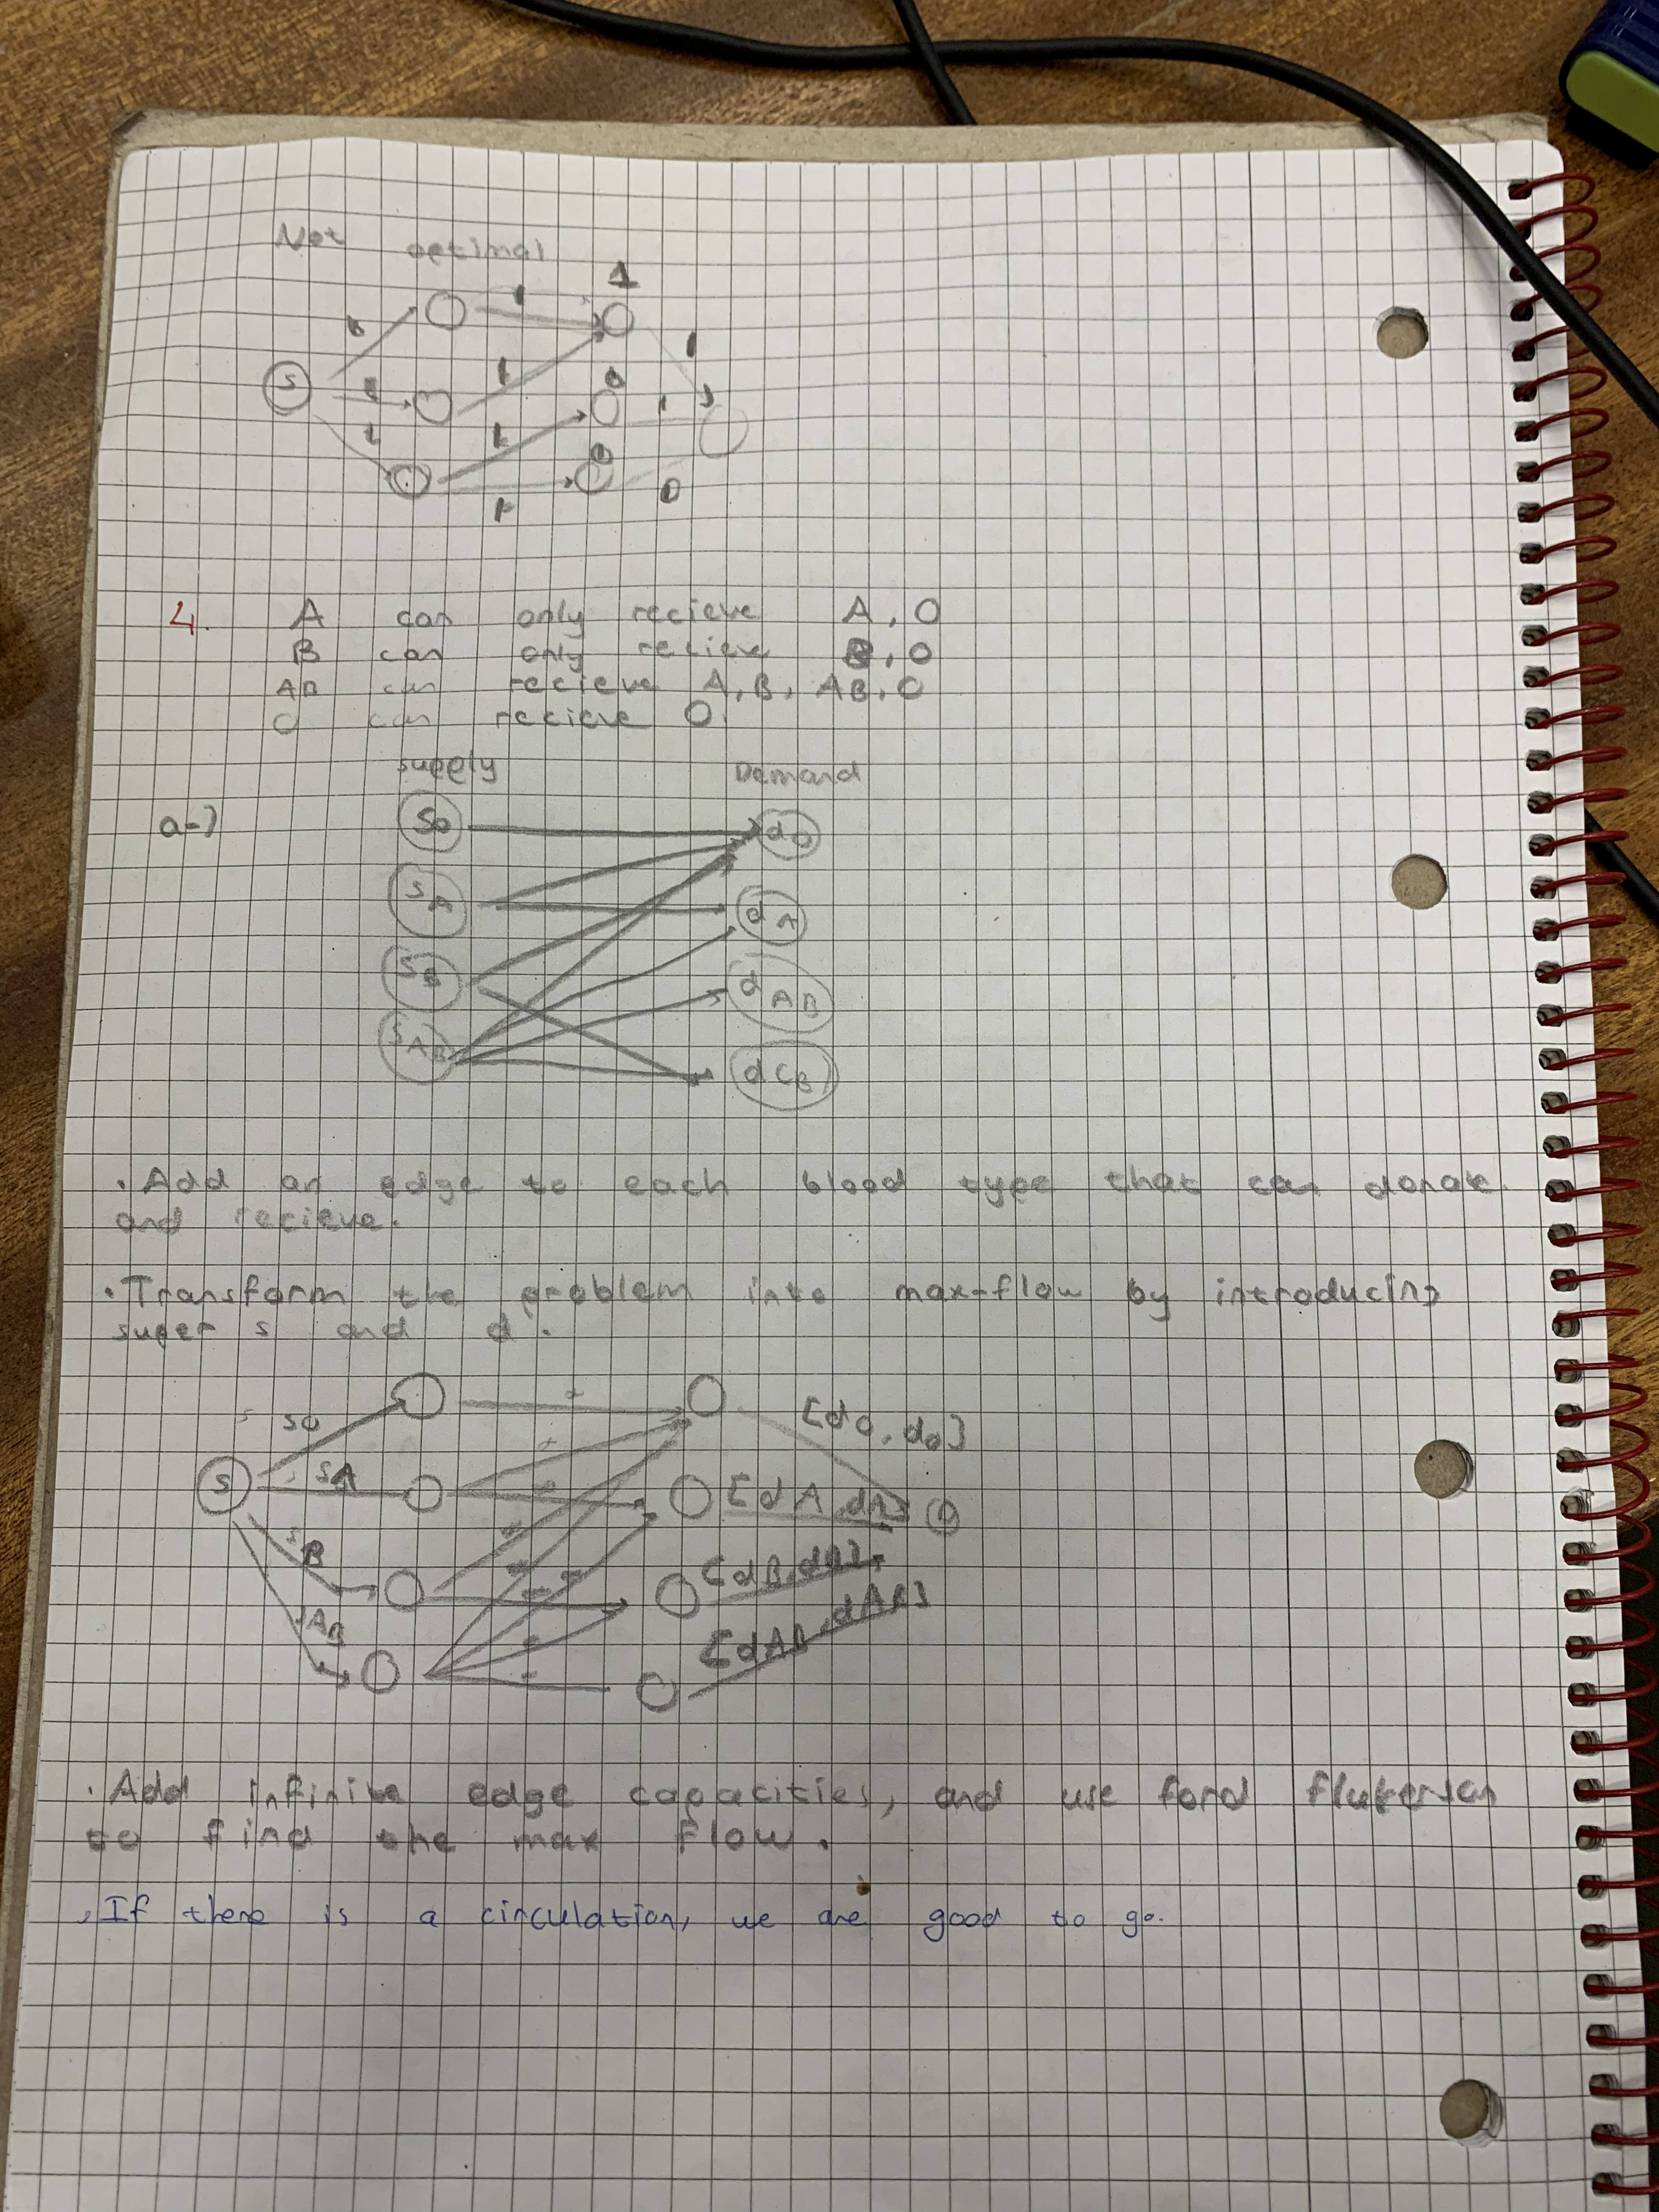 Not optimal
1
1
1
s
1
0
1
1
1
0
1
0
4. A can only recieve A, O
B can only recieve B, O
AB can recieve A, B, AB, O
O can recieve O.
supply Demand
a-)
So dO
SA dA
SB dAB
SAB dCB
. Add an edge to each blood type that can donate
and recieve.
. Transform the problem into max-flow by introducing
super s and d'.
so [dO, dO]
s sA [dA, dA] t
sB [dB, dB]
sAB [dAB, dAB]
. Add infinite edge capacities, and use ford flukerson
to find the max flow.
. If there is a circulation, we are good to go.